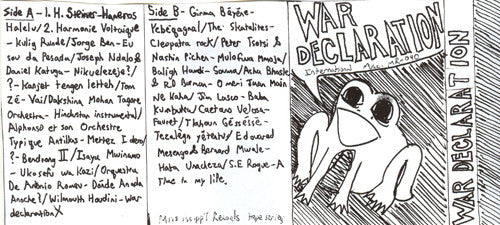 Side A - 1. H. Steiner - Hameros
Halelu / 2. Harmonie Voltaique
- Kulig Runde / Jorge Ben - Eu
sou da Pesada / Joseph Ndalo &
Daniel Katuga - Nikuelezeje? /
? - Kanjet tengen letteh / Tom
Zé - Vai / Dakshina Mohan Tagore
Orchestra - Hindustan instrumental /
Alphonso et son Orchestre
Typique Antillas - Mettez I dero /
? - Bendrong II / Isaya Mwinamo
- Ukosefu wa Kazi / Orquestra
De Antonio Romeu - Dónde Anada
Anoche? / Wilmouth Houdini - War
declaration X
Side B - Girma Bèyènè -
Yebèqagnal / The Skatalites -
Cleopatra rock / Peter Tsotsi &
Nashil Pichen - Mulofwa Mmoja /
Baligh Hamdi - Souma / Asha Bhosle
& R.D Burman - O meri Jaan Main
Ne Kaha / Jim Lasco - Baba
Kwabuta / Caetano Veloso -
Favret / Tlahoun Gèssèssè -
Tezalègn yètentu / Edouard
Mesengo & Bernard Mwale -
Hata Unacheza / S.E. Rogie - A
Time in my life.
Mississippi Records tape series
WAR
DECLARATION
International Mix. MR-040
WAR DECLARATION